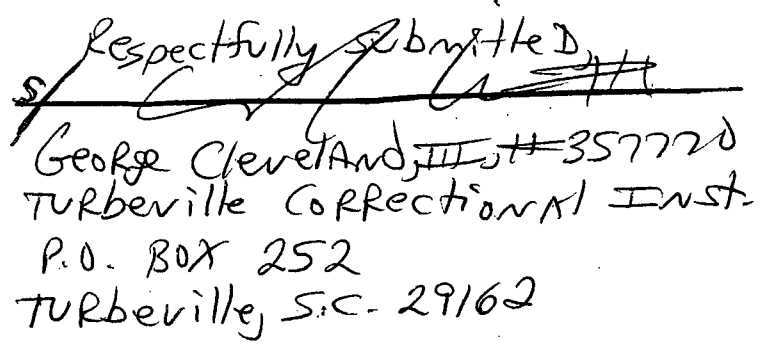 Respectfully submitteD,
S/
GeoRge ClevelAnd, III, #357720
TURbeville CoRRectionAl Inst.
P.O. BOX 252
TURbeville, S.C. 29162